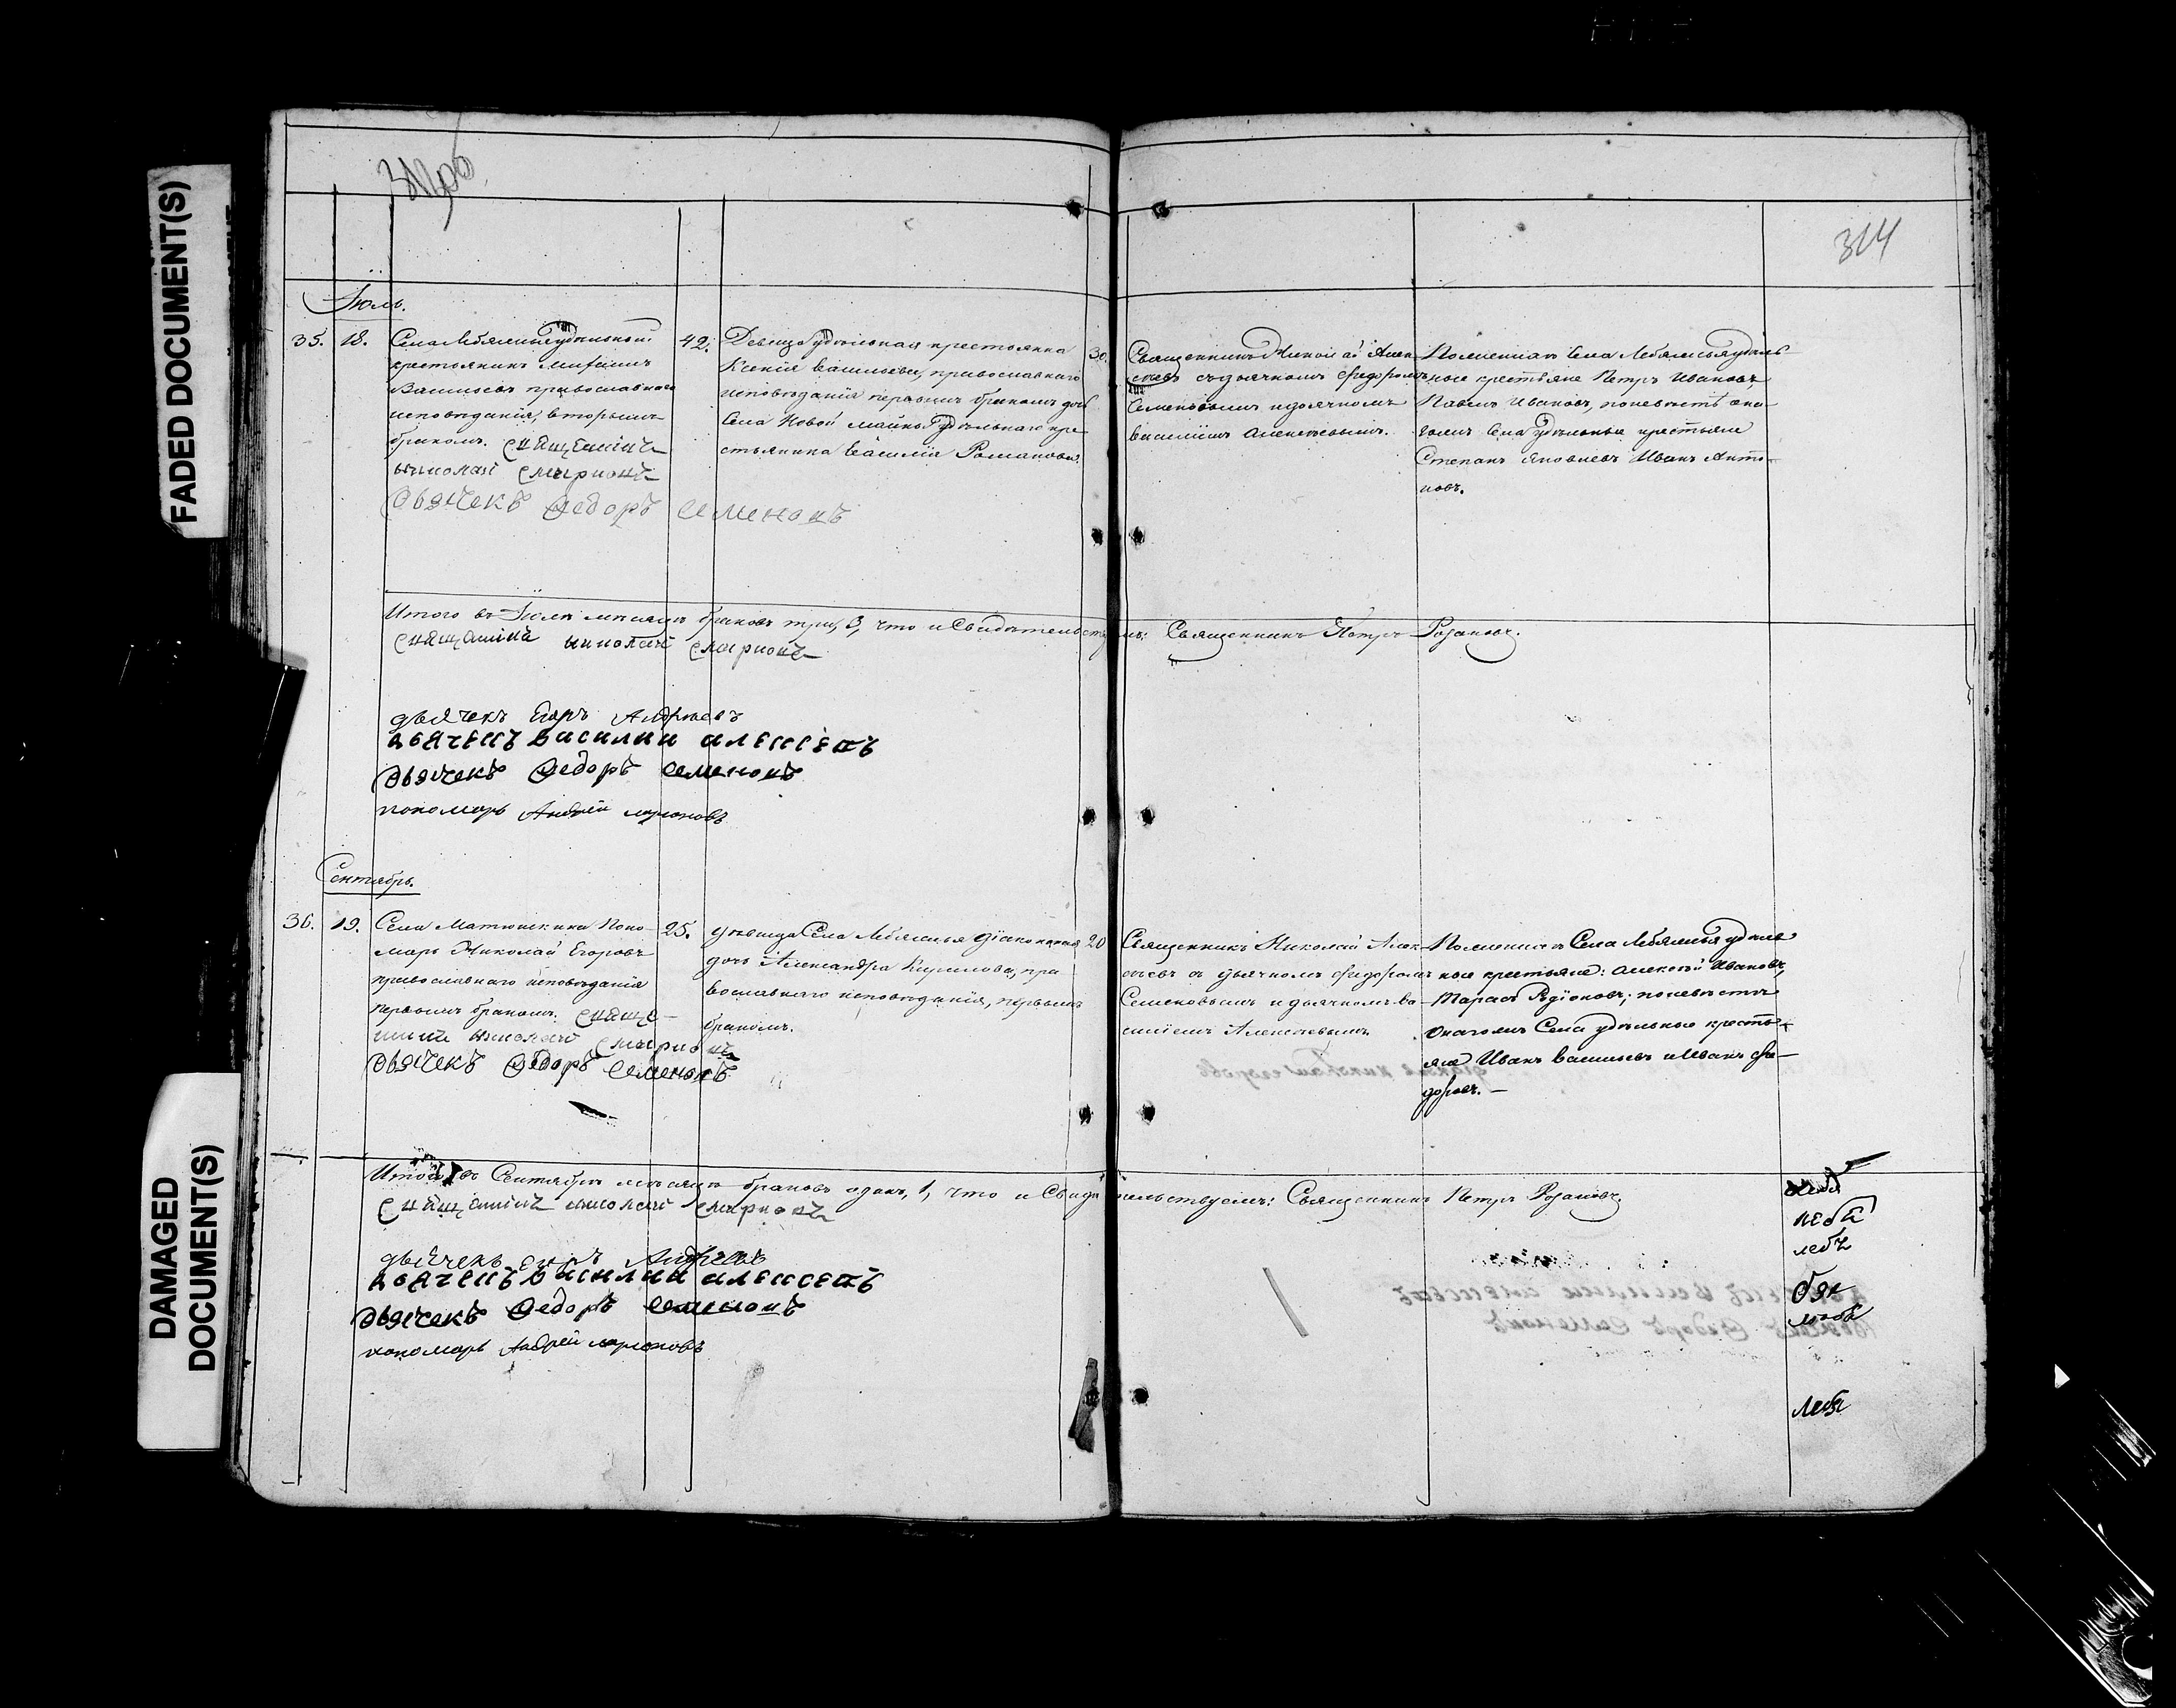 FADED DOCUMENT(S)
DAMAGED
DOCUMENT(S)
314
Іюль.
35. 18. Села Лебяжья удѣльной
крестьянинъ
Васильевъ православнаго
исповѣданія, вторымъ
бракомъ. священникъ
николай смирновъ
дьячекъ Ѳедоръ семеновъ
42. Девица удѣльная крестьянка
Ксенія Васильева, православнаго
исповѣданія первымъ бракомъ дочь
Села Новой майны удѣльнаго кре
стьянина Василія Романова.
30.
Священникъ Николай Алек
сѣевъ съ дьячкомъ Ѳедоромъ
Семеновымъ и дьячкомъ
василіемъ алексѣевымъ.
По женихѣ Села Лебяжья удѣль
ные крестьяне Петръ Ивановъ
Павелъ Ивановъ, по невѣстѣ она
гожъ Села удѣльные крестьяне
Степанъ Яковлевъ Иванъ Анто
новъ.
Итого въ Іюлѣ месяцѣ браковъ три, 3, что и Свидѣтельствуемъ: Священникъ Петръ Розановъ.
священникъ николай смирновъ
дьячекъ Егоръ Андреевъ
дьячекъ василии алексеевъ
дьячекъ Ѳедоръ семеновъ
пономарь Андрей
Сентябрь.
36. 19. Села Матюшкина Поно
марь Николай Егоровъ
православнаго исповѣданія
первымъ бракомъ. священ
никъ николай смирновъ
дьячекъ Ѳедоръ семеновъ
25. Девица Села Лебяжья діаконская
дочь Александра Кирилова, пра
вославнаго исповѣданія, первымъ
бракомъ.
20
Священникъ Николай Алек
сѣевъ съ дьячкомъ Ѳедоромъ
Семеновымъ и дьячкомъ ва
силіемъ Алексѣевымъ
По женихѣ Села Лебяжья удѣль
ные крестьяне: алексѣй Ивановъ,
Тарасъ Родіоновъ; по невѣстѣ
онагожъ Села удѣльные крестья
яне Иванъ васильевъ и Иванъ Ѳе
доровъ.
Итого въ Сентябрѣ месяцѣ браковъ одинъ, 1, что и Свидѣтельствуемъ: Священникъ Петръ Розановъ.
священникъ николай смирновъ
дьячекъ Егоръ Андреевъ
дьячекъ василии алексеевъ
дьячекъ Ѳедоръ семеновъ
пономарь Андрей